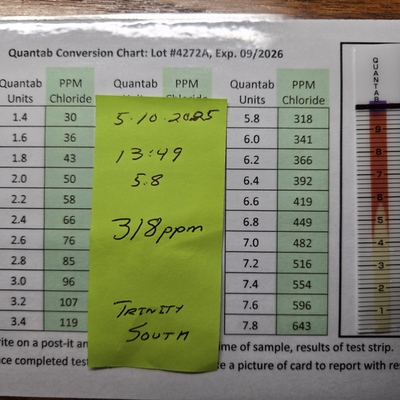 Quantab Conversion Chart: Lot #4272A, Exp. 09/2026
Quantab Units PPM Chloride Quantab PPM Quantab Units PPM Chloride
1.4 30 5.8 318
1.6 36 6.0 341
1.8 43 6.2 366
2.0 50 6.4 392
2.2 58 6.6 419
2.4 66 6.8 449
2.6 76 7.0 482
2.8 85 7.2 516
3.0 96 7.4 554
3.2 107 7.6 596
3.4 119 7.8 643
5.10.2025
13:49
5.8
318ppm
TRINITY
SOUTH
QUANTAB
9
8
7
6
5
4
3
2
1
rite on a post-it an me of sample, results of test strip.
ce completed test e a picture of card to report with re